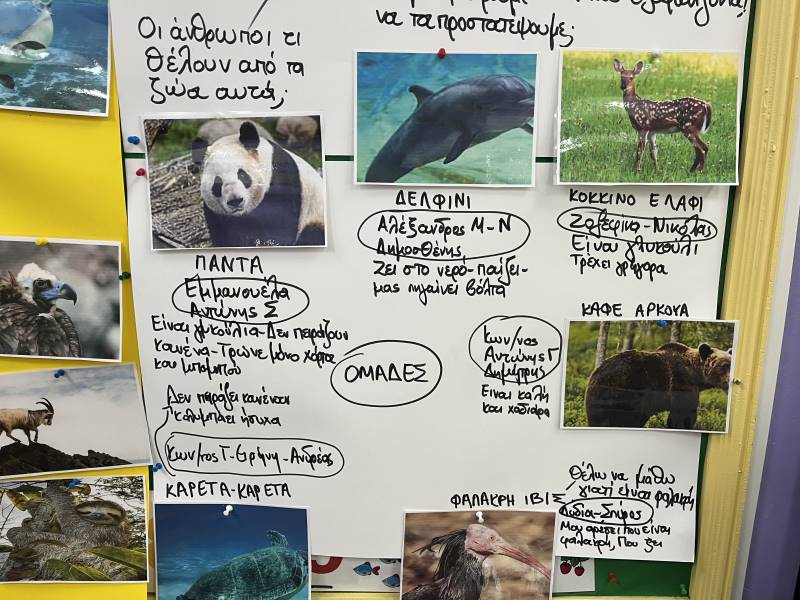 Οι άνθρωποι τι
θέλουν από τα
ζώα αυτά;
να τα προστατέψουμε;
ΠΑΝΤΑ
Εμμανουέλα
Αντώνης Σ
Είναι γλυκούλια-Δεν πειράζουν
κανένα-Τρώνε μόνο χόρτα
και μπαμπού
ΔΕΛΦΙΝΙ
Αλέξανδρος Μ-Ν
Δημοσθένης
Ζει στο νερό-παίζει-
μας πηγαίνει βόλτα
ΚΟΚΚΙΝΟ ΕΛΑΦΙ
Ζαφειρία-Νικόλας
Είναι γλυκούλι
Τρέχει γρήγορα
ΟΜΑΔΕΣ
ΚΑΦΕ ΑΡΚΟΥΔΑ
Κων/νος
Αντώνης Γ
Δημήτρης
Είναι καλή
και χαδιάρα
Δεν πειράζει κανέναν
κολυμπάει ήσυχα
Κων/νος Γ-Ειρήνη-Ανδρέας
ΚΑΡΕΤΑ-ΚΑΡΕΤΑ
ΦΑΛΑΚΡΗ ΙΒΙΣ
Θέλω να μάθω
γιατί είναι φαλακρή
Λυδία-Σπύρος
Μου αρέσει που είναι
φαλακρή, Που ζει